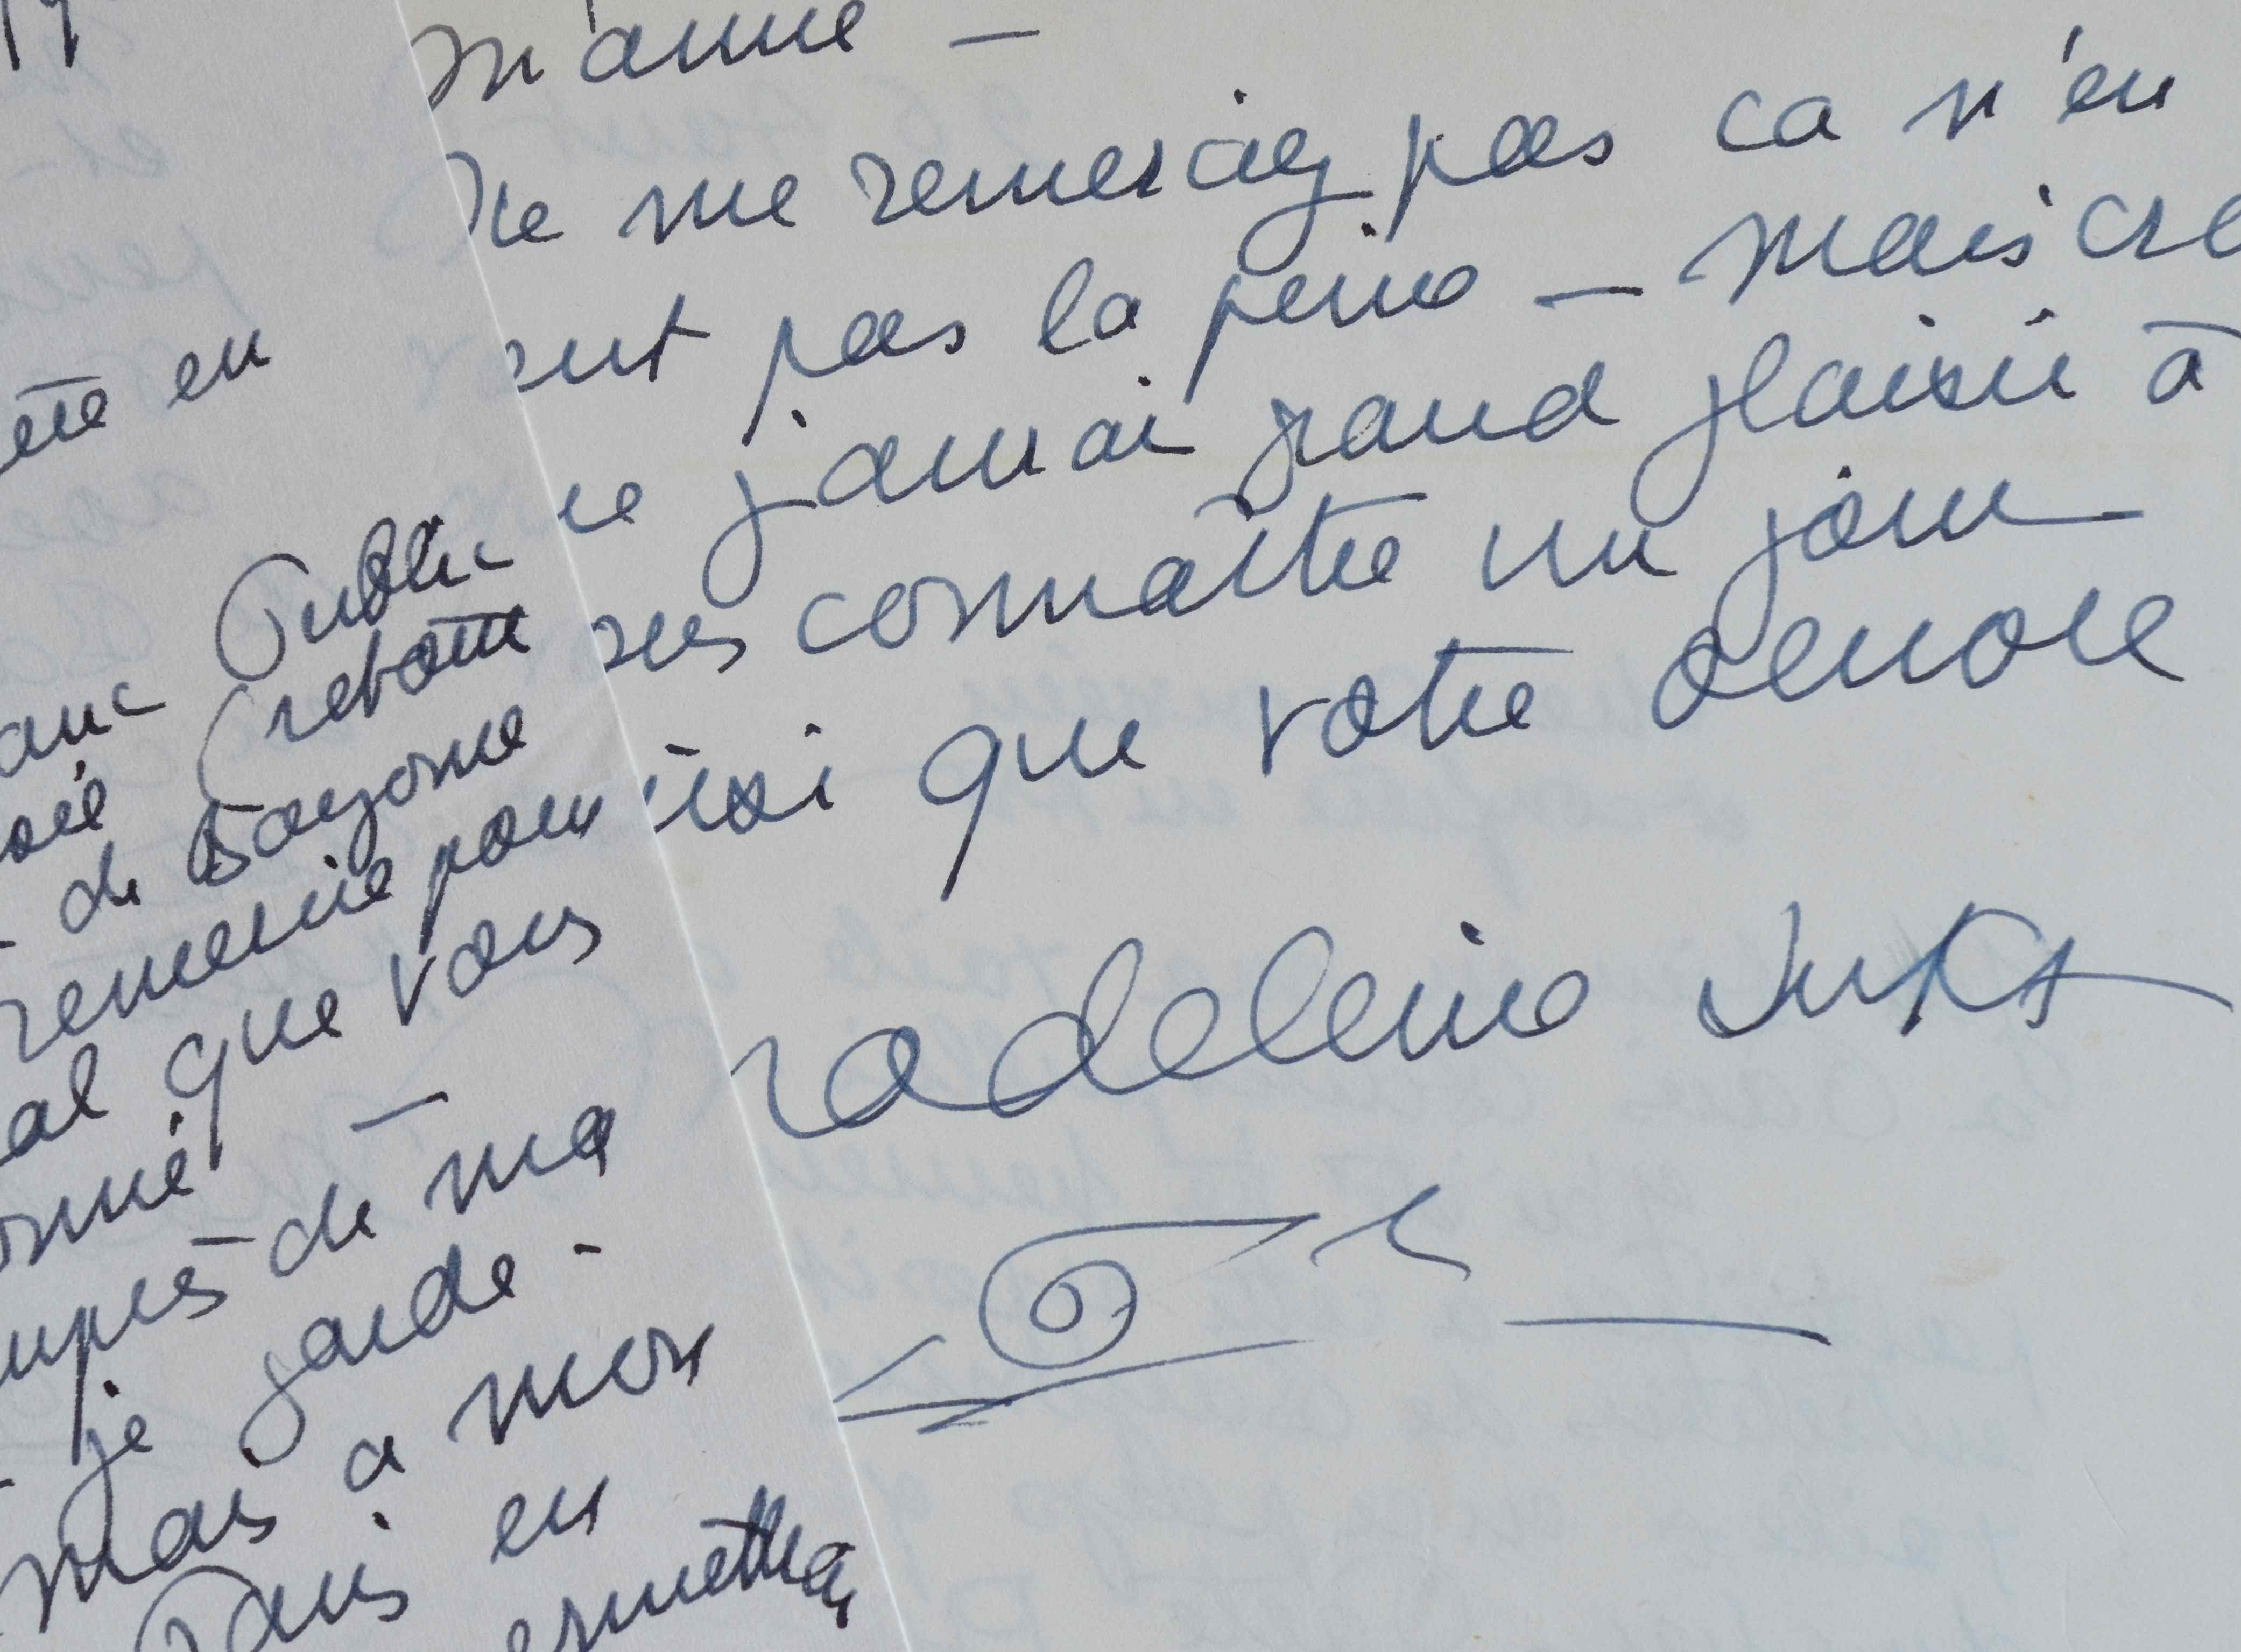 été en
Public
(rebotte
de Bayonne
remercie pour
al que vous
onné —
auprès de ma
je garde -
mais a mon
Paris en
ermettra
m'aime —
Ne me remerciez pas ca n'en
aut pas la peine — mais cro
ue j'aurai grand plaisir à
ous connaître un jour
insi que votre œuvre
Madeleine